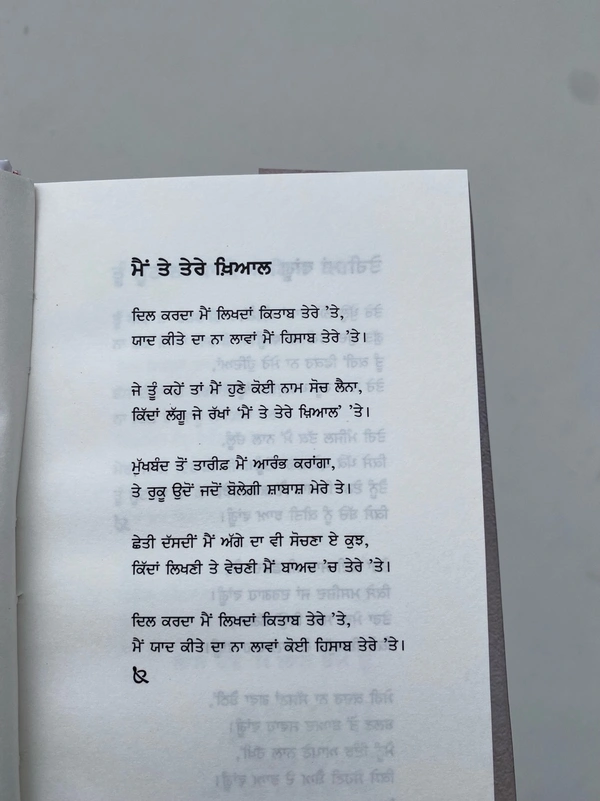 ਮੈਂ ਤੇ ਤੇਰੇ ਖ਼ਿਆਲ
ਦਿਲ ਕਰਦਾ ਮੈਂ ਲਿਖਦਾਂ ਕਿਤਾਬ ਤੇਰੇ ’ਤੇ,
ਯਾਦ ਕੀਤੇ ਦਾ ਨਾ ਲਾਵਾਂ ਮੈਂ ਹਿਸਾਬ ਤੇਰੇ ’ਤੇ।
ਜੇ ਤੂੰ ਕਹੇਂ ਤਾਂ ਮੈਂ ਹੁਣੇ ਕੋਈ ਨਾਮ ਸੋਚ ਲੈਨਾ,
ਕਿੱਦਾਂ ਲੱਗੂ ਜੇ ਰੱਖਾਂ ‘ਮੈਂ ਤੇ ਤੇਰੇ ਖ਼ਿਆਲ’ ’ਤੇ।
ਮੁੱਖਬੰਦ ਤੋਂ ਤਾਰੀਫ਼ ਮੈਂ ਆਰੰਭ ਕਰਾਂਗਾ,
ਤੇ ਰੁਕੂ ਉਦੋਂ ਜਦੋਂ ਬੋਲੇਗੀ ਸ਼ਾਬਾਸ਼ ਮੇਰੇ ਤੇ।
ਛੇਤੀ ਦੱਸਦੀਂ ਮੈਂ ਅੱਗੇ ਦਾ ਵੀ ਸੋਚਣਾ ਏ ਕੁਝ,
ਕਿੱਦਾਂ ਲਿਖਣੀ ਤੇ ਵੇਚਣੀ ਮੈਂ ਬਾਅਦ ’ਚ ਤੇਰੇ ’ਤੇ।
ਦਿਲ ਕਰਦਾ ਮੈਂ ਲਿਖਦਾਂ ਕਿਤਾਬ ਤੇਰੇ ’ਤੇ,
ਮੈਂ ਯਾਦ ਕੀਤੇ ਦਾ ਨਾ ਲਾਵਾਂ ਕੋਈ ਹਿਸਾਬ ਤੇਰੇ ’ਤੇ।